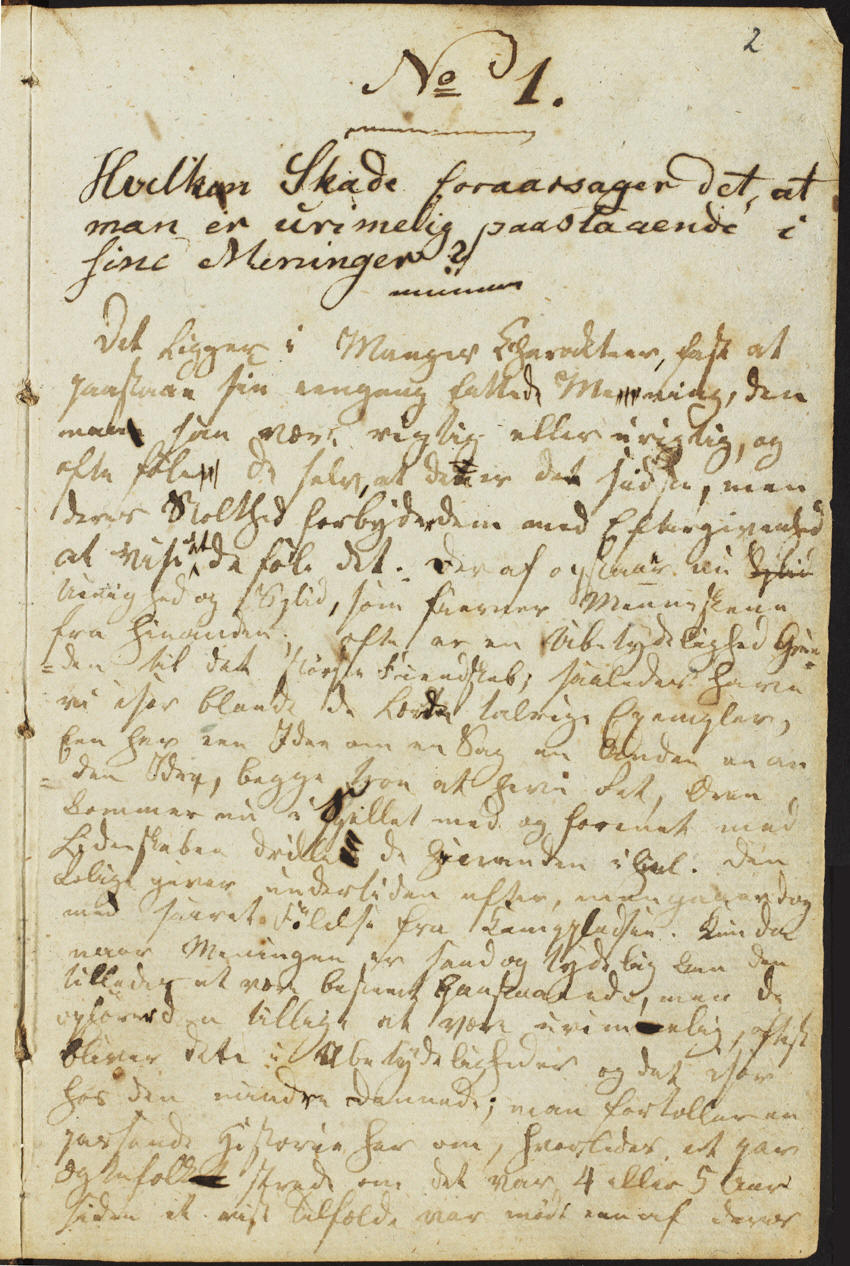 2
No 1.
Hvilken Skade foraarsager det, at
man er urimelig paastaaende i
sine Meninger?
Det ligger i Manges Charakteer, fast at
paastaae sin eengang fattede Mening, den
maae saa være rigtig eller urigtig, og
ofte føle de selv, at det er det sidste, men
deres Stolthed forbyder dem med Eftergivenhed
at vise at de føle det. Deraf opstaaer nu
Uenighed og Splid, som fierner Menneskene
fra hinanden; ofte er en Ubetydelighed Grun=
=den til det største Fiendskab; saaledes have
vi især blandt de Lærde talrige Exempler,
Een har een Idee om en Sag en Anden en an
=den Idee, begge troe at have Ret, Æren
kommer nu i Spillet med og forenet med
Lidenskaben driller de hinanden i . Den
ædlige giver undertiden efter, men gaaer dog
med saaret Følelse fra Kamppladsen. Kun da
naar Meningen er sand og tydelig kan den
tillades at være bestemt paastaaende, men da
ophører den tillige at være urimelig, oftest
bliver dette i Ubetydeligheder og det især
hos den mindre dannede; man fortæller en
passende Historie her om, hvorledes et par
Ægtefolk strede om det var 4 eller 5 Aar
siden et vist Tilfælde var mødt een af deres